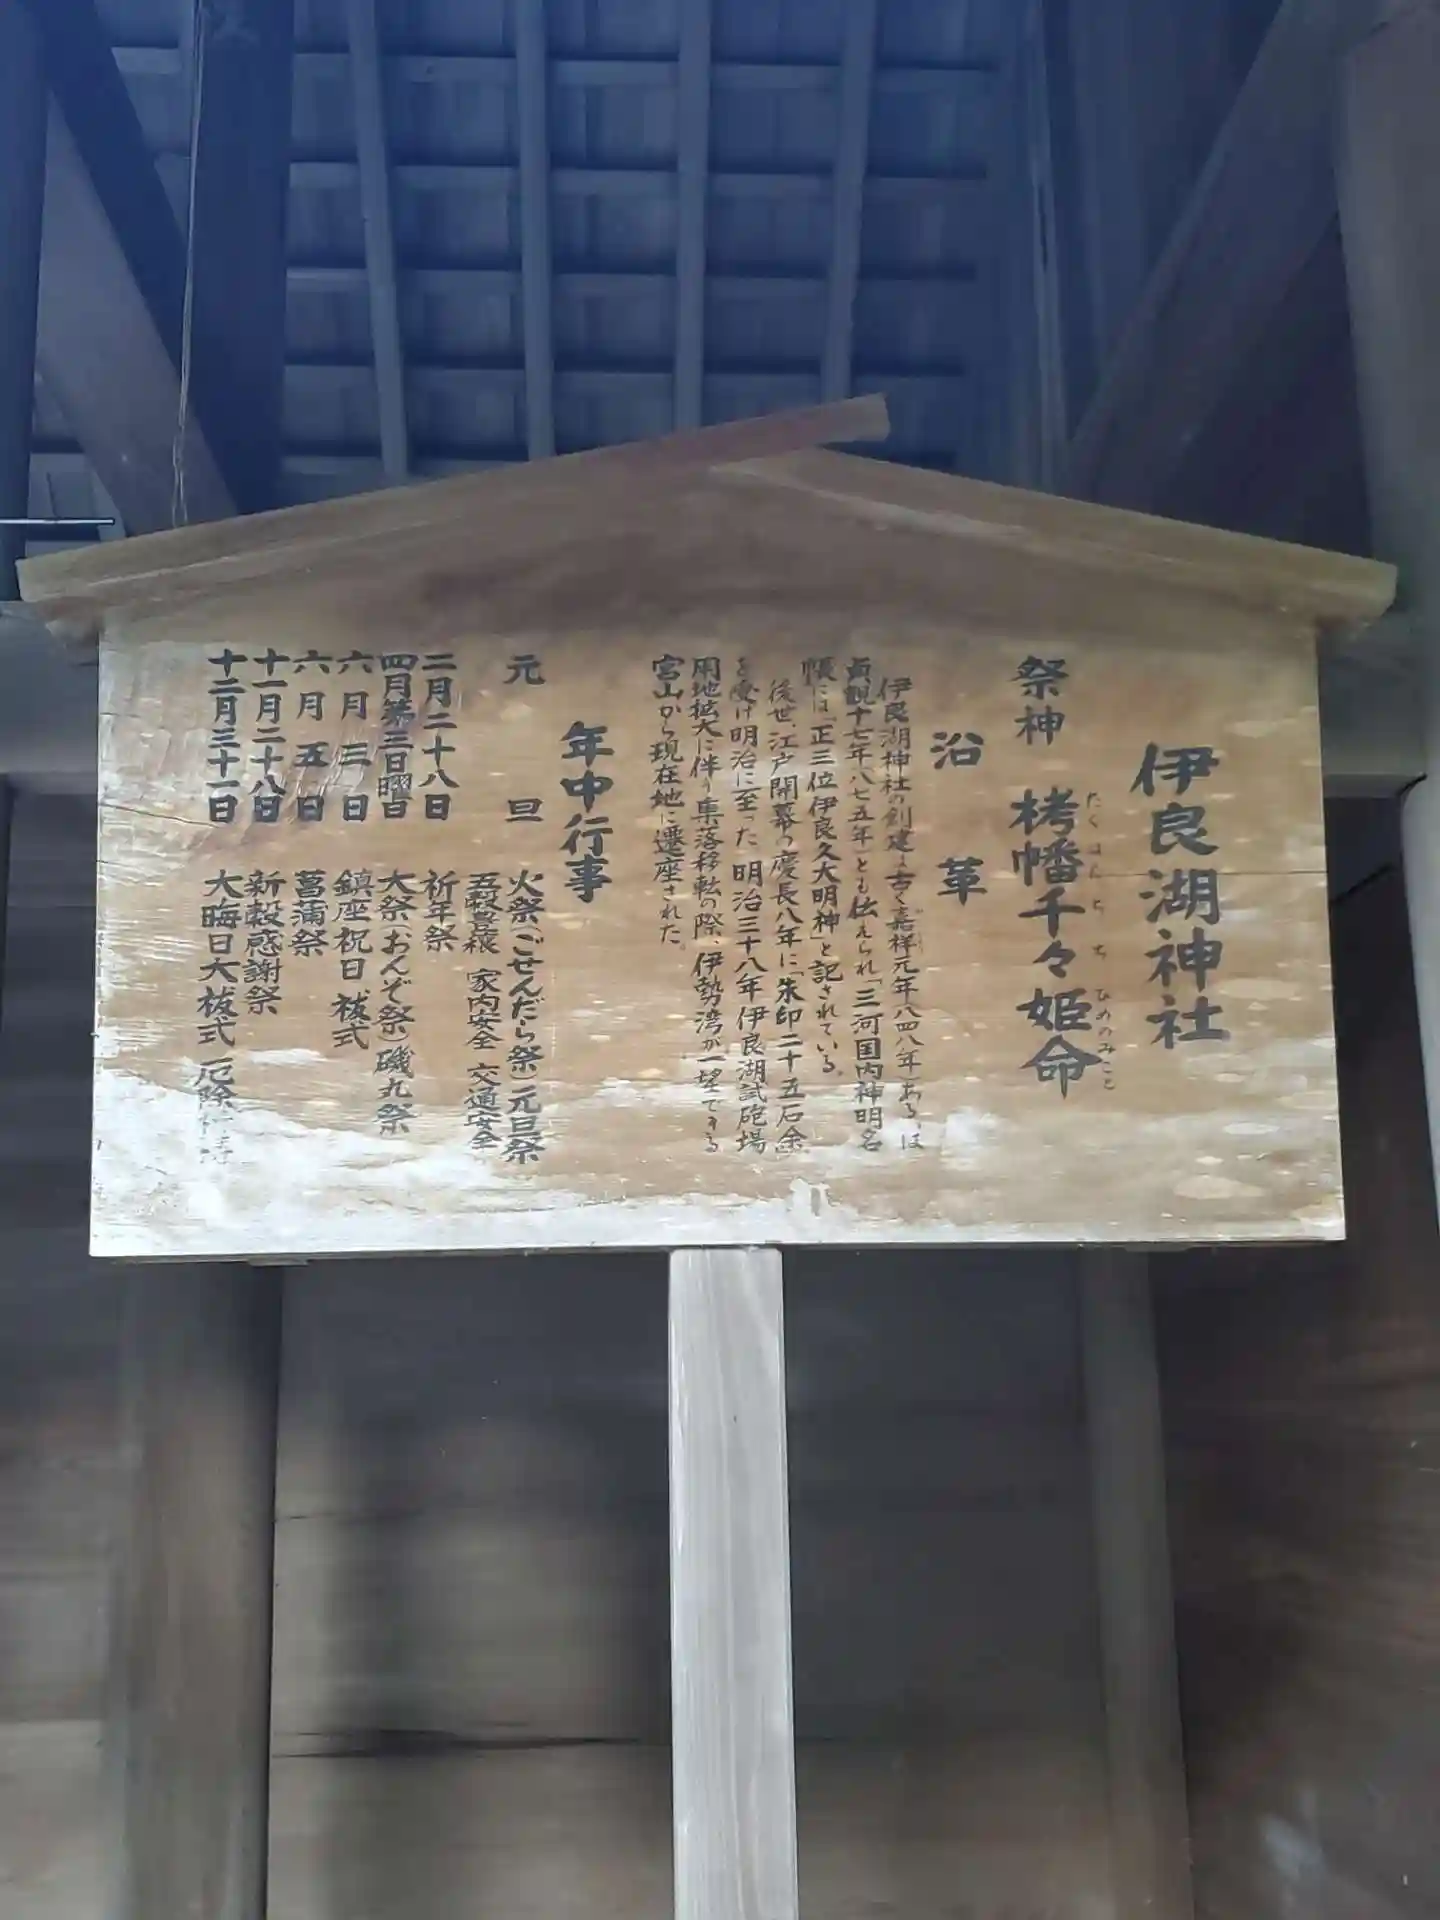 伊良湖神社
祭神 栲幡千々姫命
たくはたちぢひめのみこと
沿革
伊良湖神社の創建は古く嘉祥元年(八四八年)あるいは
貞観十七年(八七五年)とも伝えられ「三河国内神明名
帳」には「正三位伊良久大明神」と記されている。
後世、江戸開幕の慶長八年に「朱印二十五石余
を受け明治に至った 明治三十八年伊良湖試砲場
用地拡大に伴う集落移転の際、伊勢湾が一望できる
宮山から現在地に遷座された。
年中行事
元旦 火祭(ごせんだら祭)元旦祭
五穀豊穣 家内安全 交通安全
二月二十八日 祈年祭
四月第三日曜日 大祭(おんぞ祭)磯丸祭
六月三日 鎮座祝日 祓式
六月五日 菖蒲祭
十一月二十八日 新穀感謝祭
十二月三十一日 大晦日大祓式 厄除